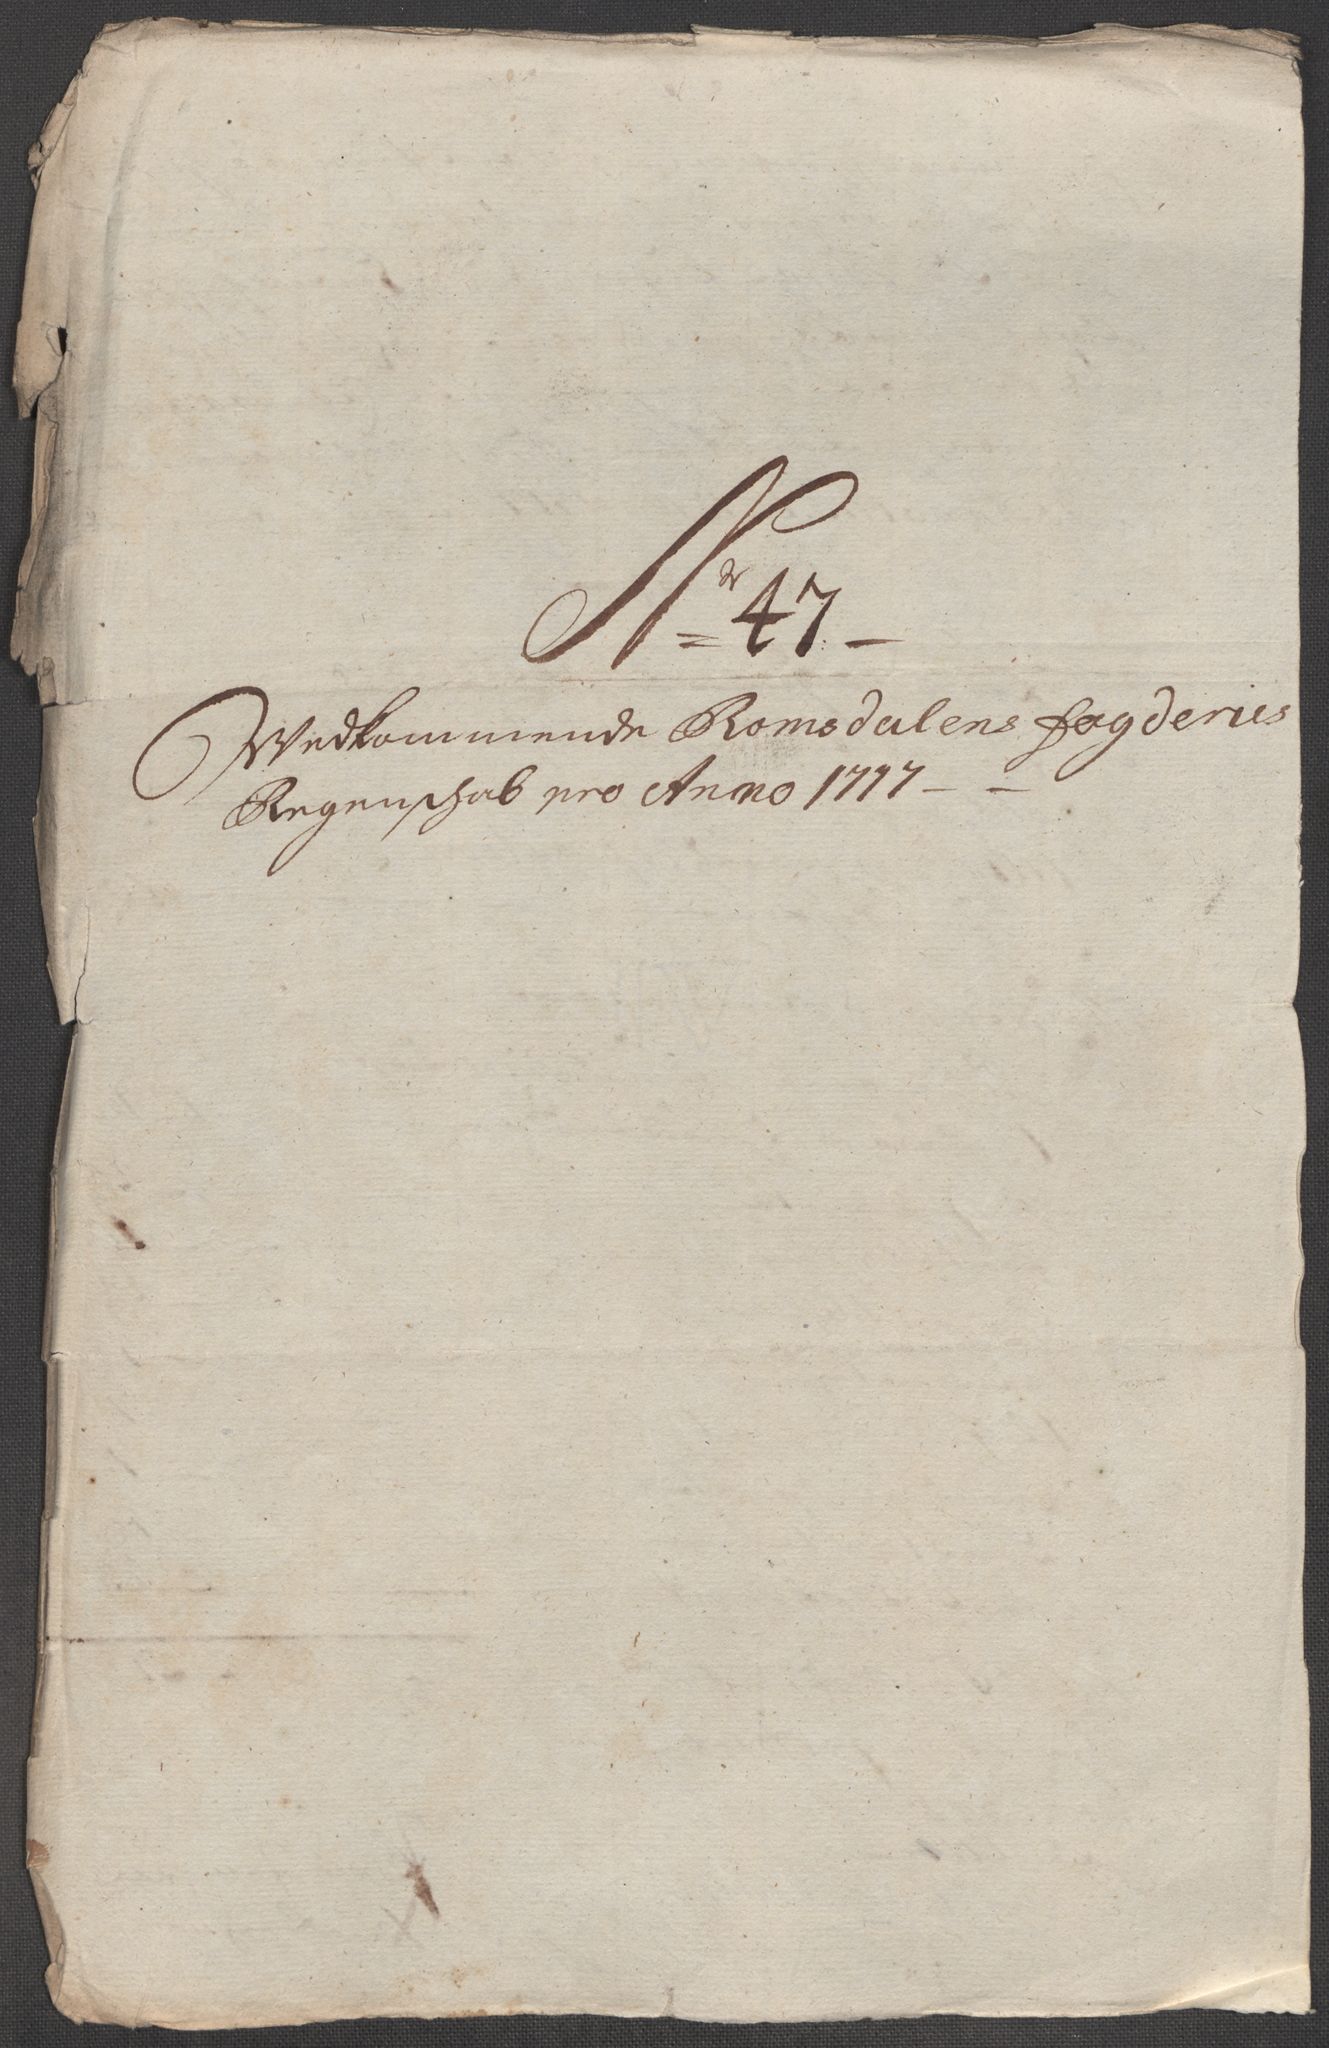 Nr 47
Wedkommende Romsdalens fogderies
Regenschab pro Anno 1717